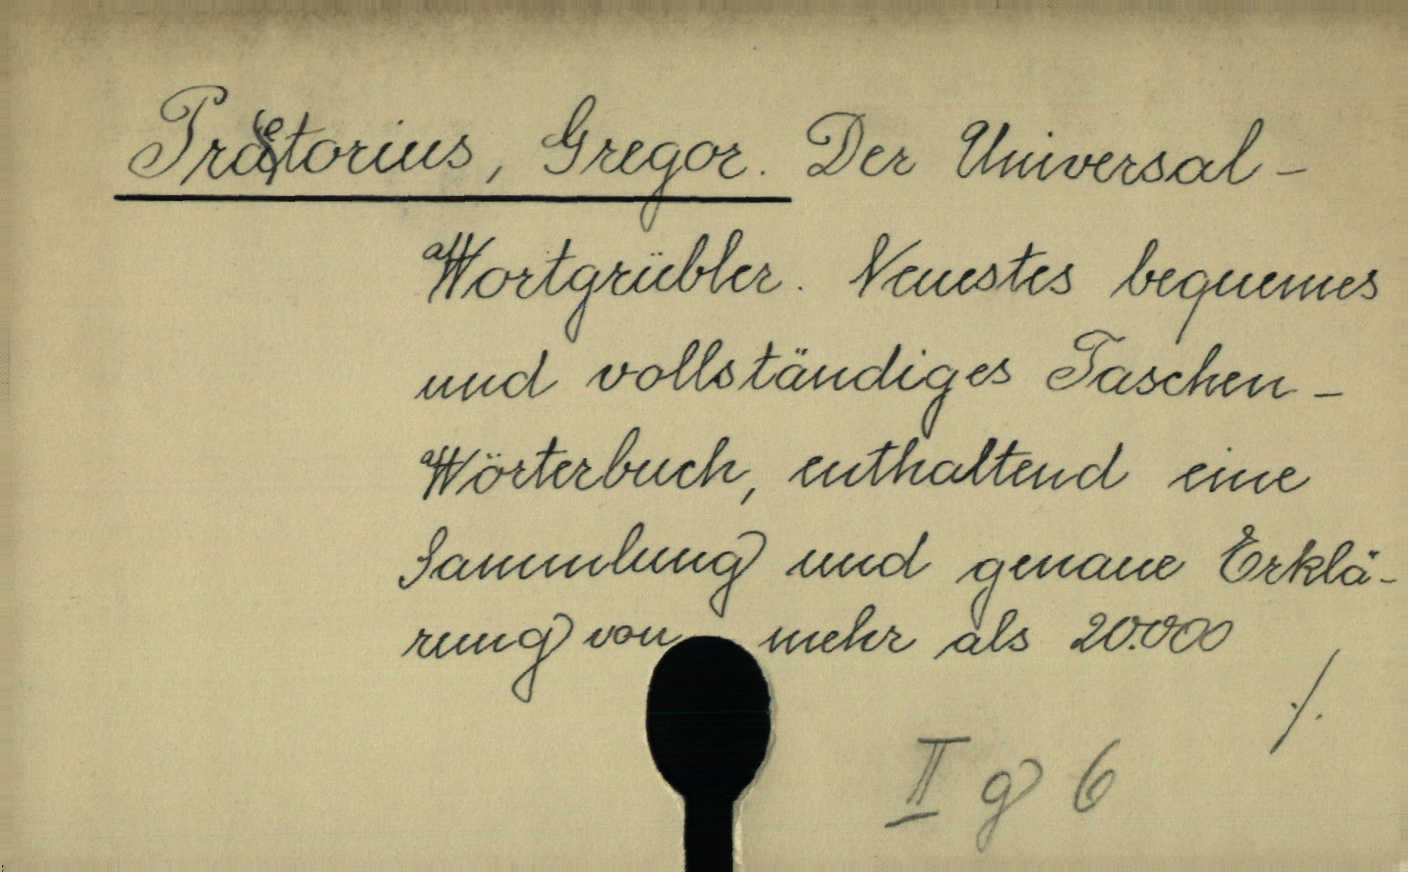 Praetorius, Gregor. Der Universal-
Wortgrübler. Neuestes bequemes
und vollständiges Taschen-
Wörterbuch, enthaltend eine
Sammlung und genaue Erklä-
rung von mehr als 20.000
./.
II g 6